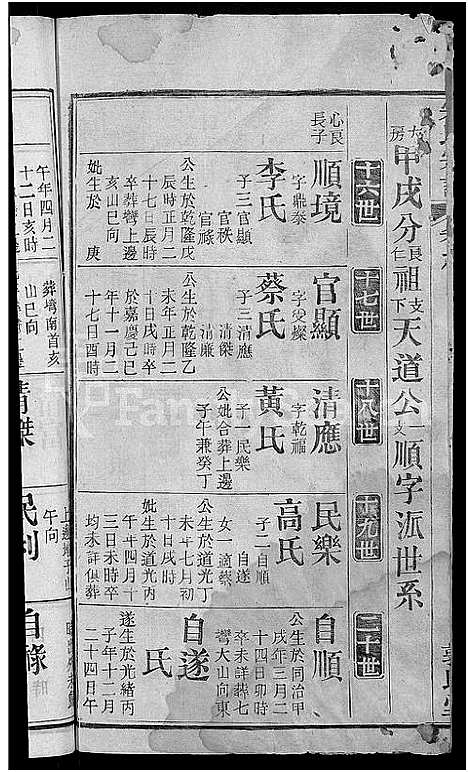 大房甲戌分良仁祖支下天道公一支順字派世系
十六世
心良長子
順境
字鼎泰
李氏
子三官顯
官秩
官祿
公生於乾隆戊
辰時正月二
十七日辰時
卒葬灣上邊
亥山巳向
妣生於 庚
午年四月二
十二日亥時
十七世
官顯
字文燦
蔡氏
子三清應
清傑
清廉
公生於乾隆乙
未年正月二
十日戌時卒
於嘉慶己巳
年十一月二
十七日酉時
葬塆南首亥
山巳向
十八世
清應
字乾福
黃氏
子一民樂
公妣合葬上邊
子午兼癸丁
清傑
十九世
民樂
高氏
子二自順
自遂
女一適蔡
公生於道光丁
未年七月初
十日戌時
妣生於道光丙
午年四月十
三日未時卒
均未詳俱葬
午向
民利
二十世
自順
公生於同治甲
戌年三月二
十四日卯時
卒未詳葬七
灣大山向東
自遂
氏
遂生於光緒丙
子年十二月
二十四日午
自祿